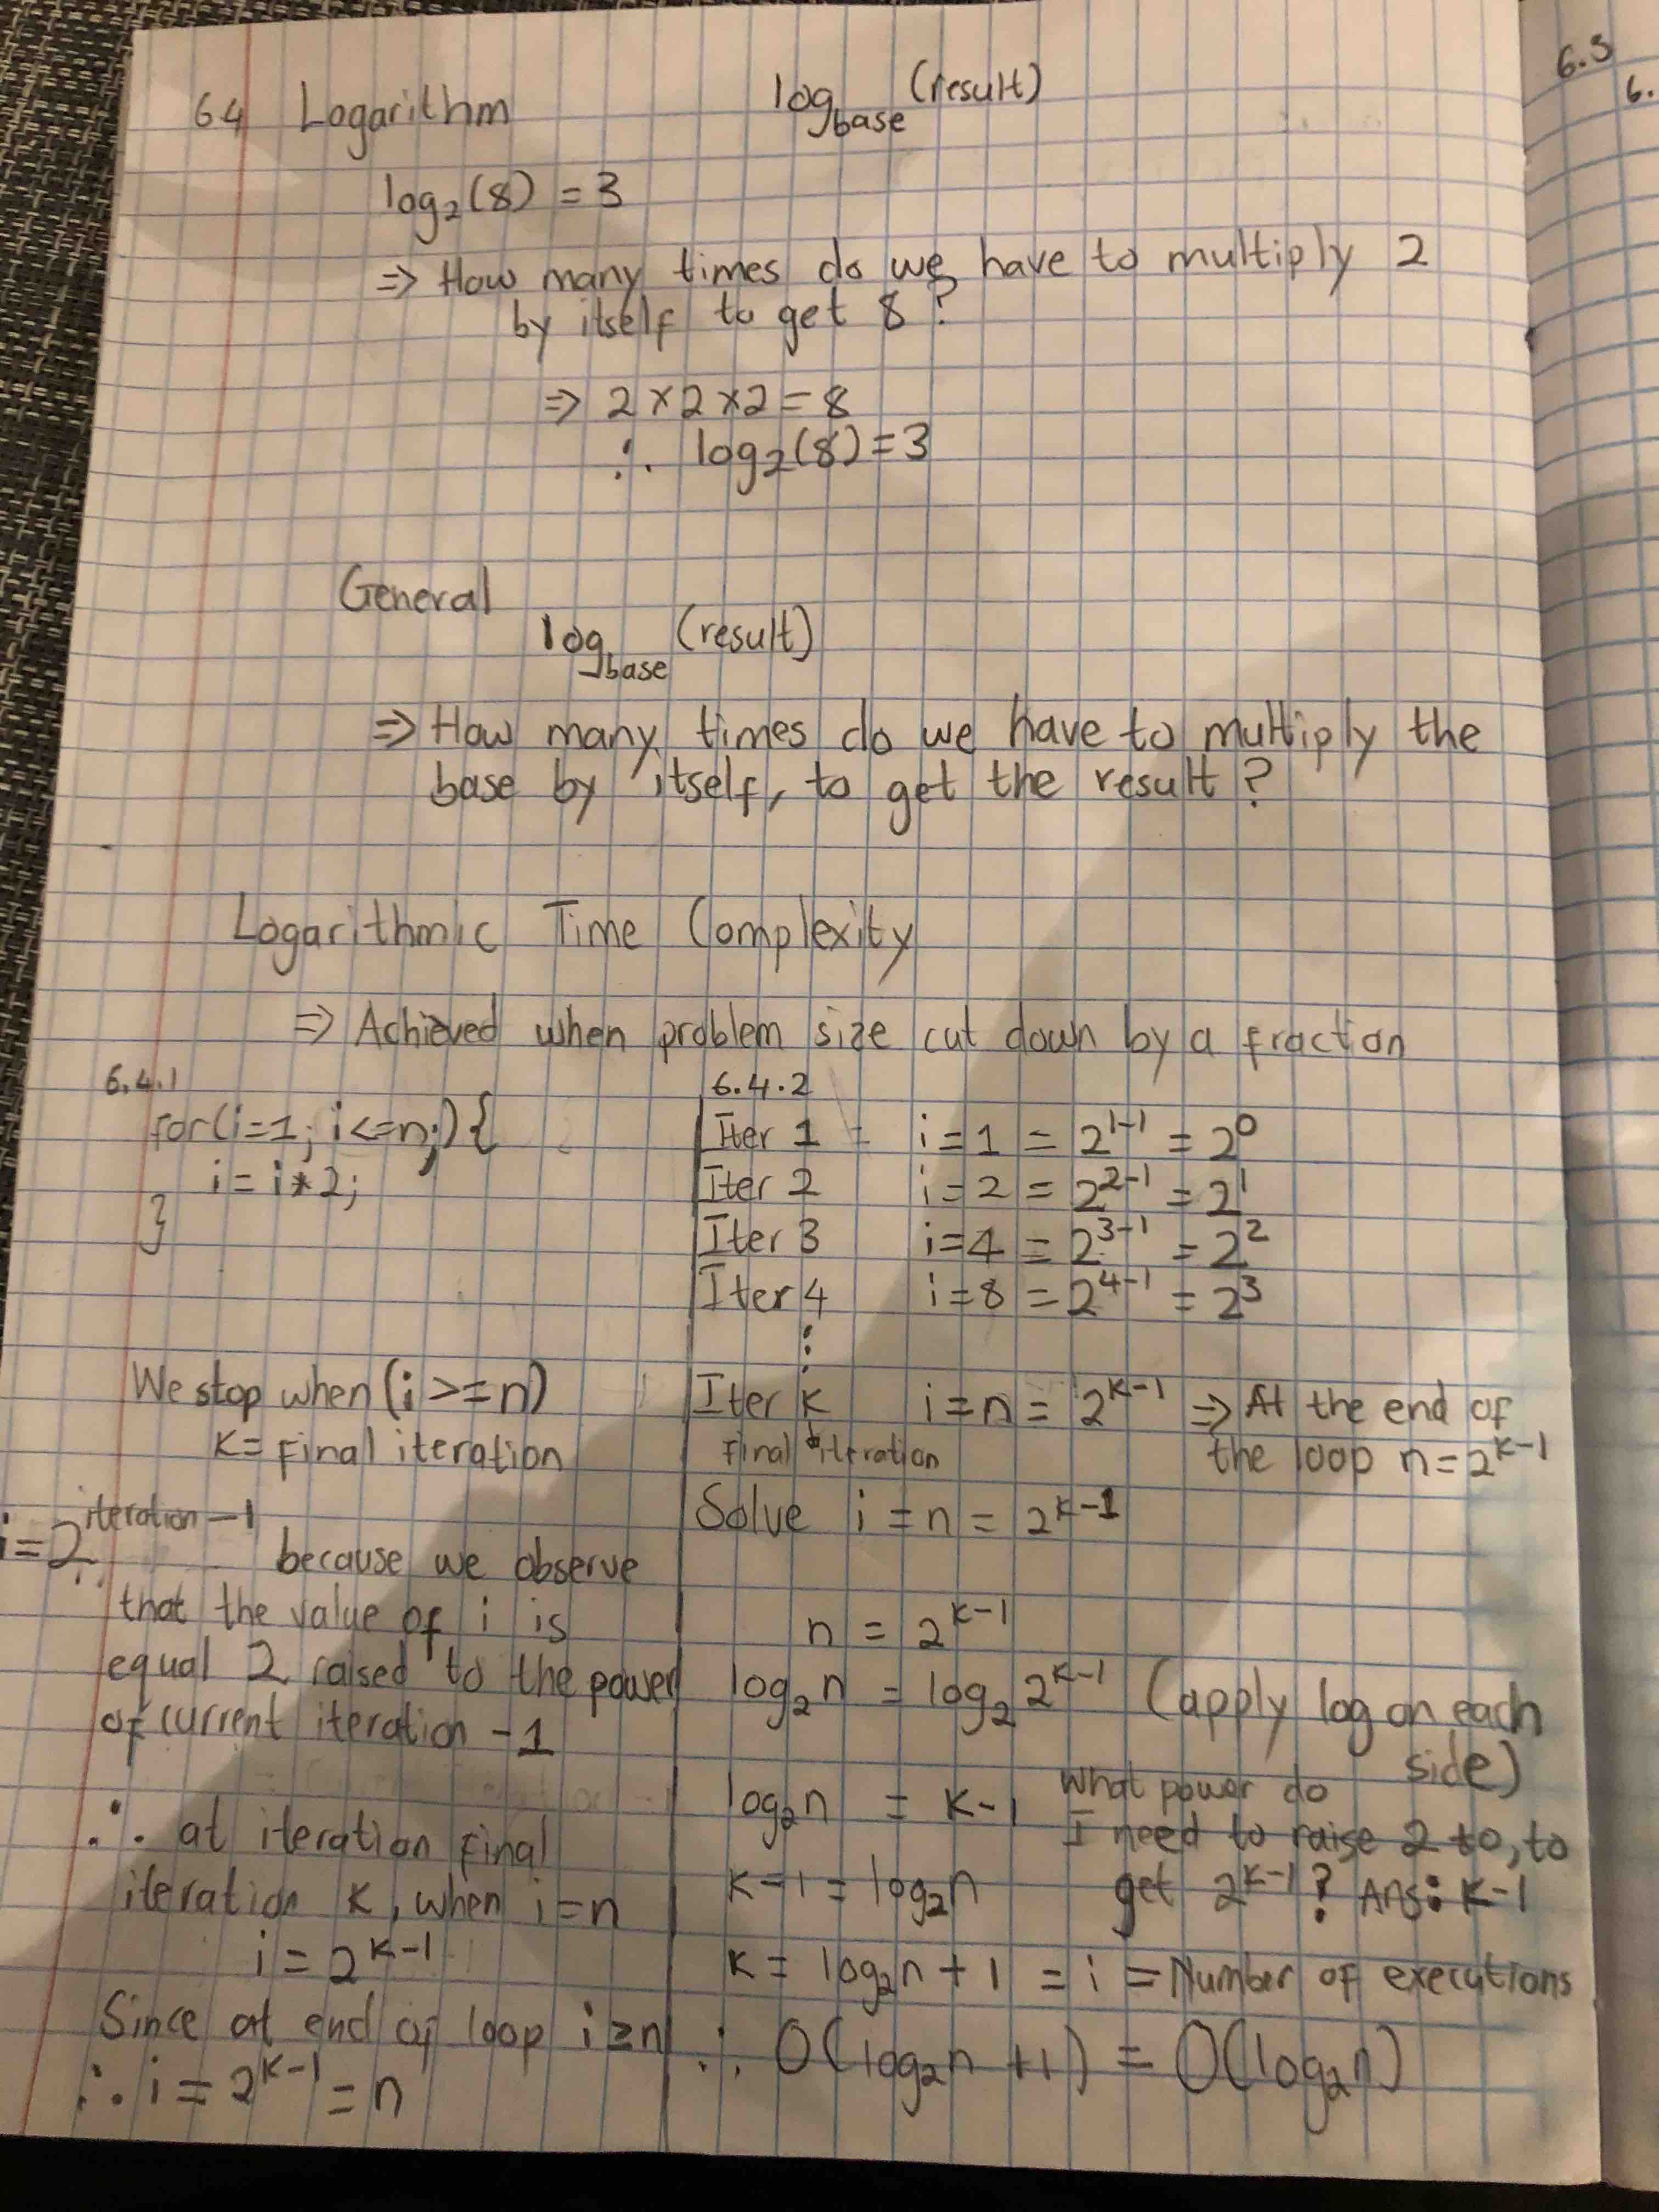 6.4 Logarithm
log base (result)
log₂(8) = 3
⇒ How many times do we have to multiply 2
by itself to get 8?
⇒ 2 × 2 × 2 = 8
∴ log₂(8) = 3
General
log base (result)
⇒ How many times do we have to multiply the
base by itself, to get the result?
Logarithmic Time Complexity
⇒ Achieved when problem size cut down by a fraction
6.4.1
for(i=1; i<=n;) {
i = i*2;
}
We stop when (i >= n)
K = final iteration
i = 2^(iteration-1)
because we observe
that the value of i is
equal 2 raised to the power
of current iteration -1
∴ at iteration final
iteration K, when i=n
i = 2^(K-1)
Since at end of loop i≥n
∴ i = 2^(K-1) = n
6.4.2
Iter 1 = i = 1 = 2^(1-1) = 2^0
Iter 2 i = 2 = 2^(2-1) = 2^1
Iter 3 i = 4 = 2^(3-1) = 2^2
Iter 4 i = 8 = 2^(4-1) = 2^3
⋮
Iter K i = n = 2^(K-1) ⇒ At the end of
final iteration the loop n = 2^(K-1)
Solve i = n = 2^(K-1)
n = 2^(K-1)
log₂n = log₂2^(K-1) (apply log on each
side)
log₂n = K-1 What power do
I need to raise 2 to, to
K-1 = log₂n get 2^(K-1)? Ans: K-1
K = log₂n + 1 = i = Number of executions
∴ O(log₂n + 1) = O(log₂n)
6.5
6.